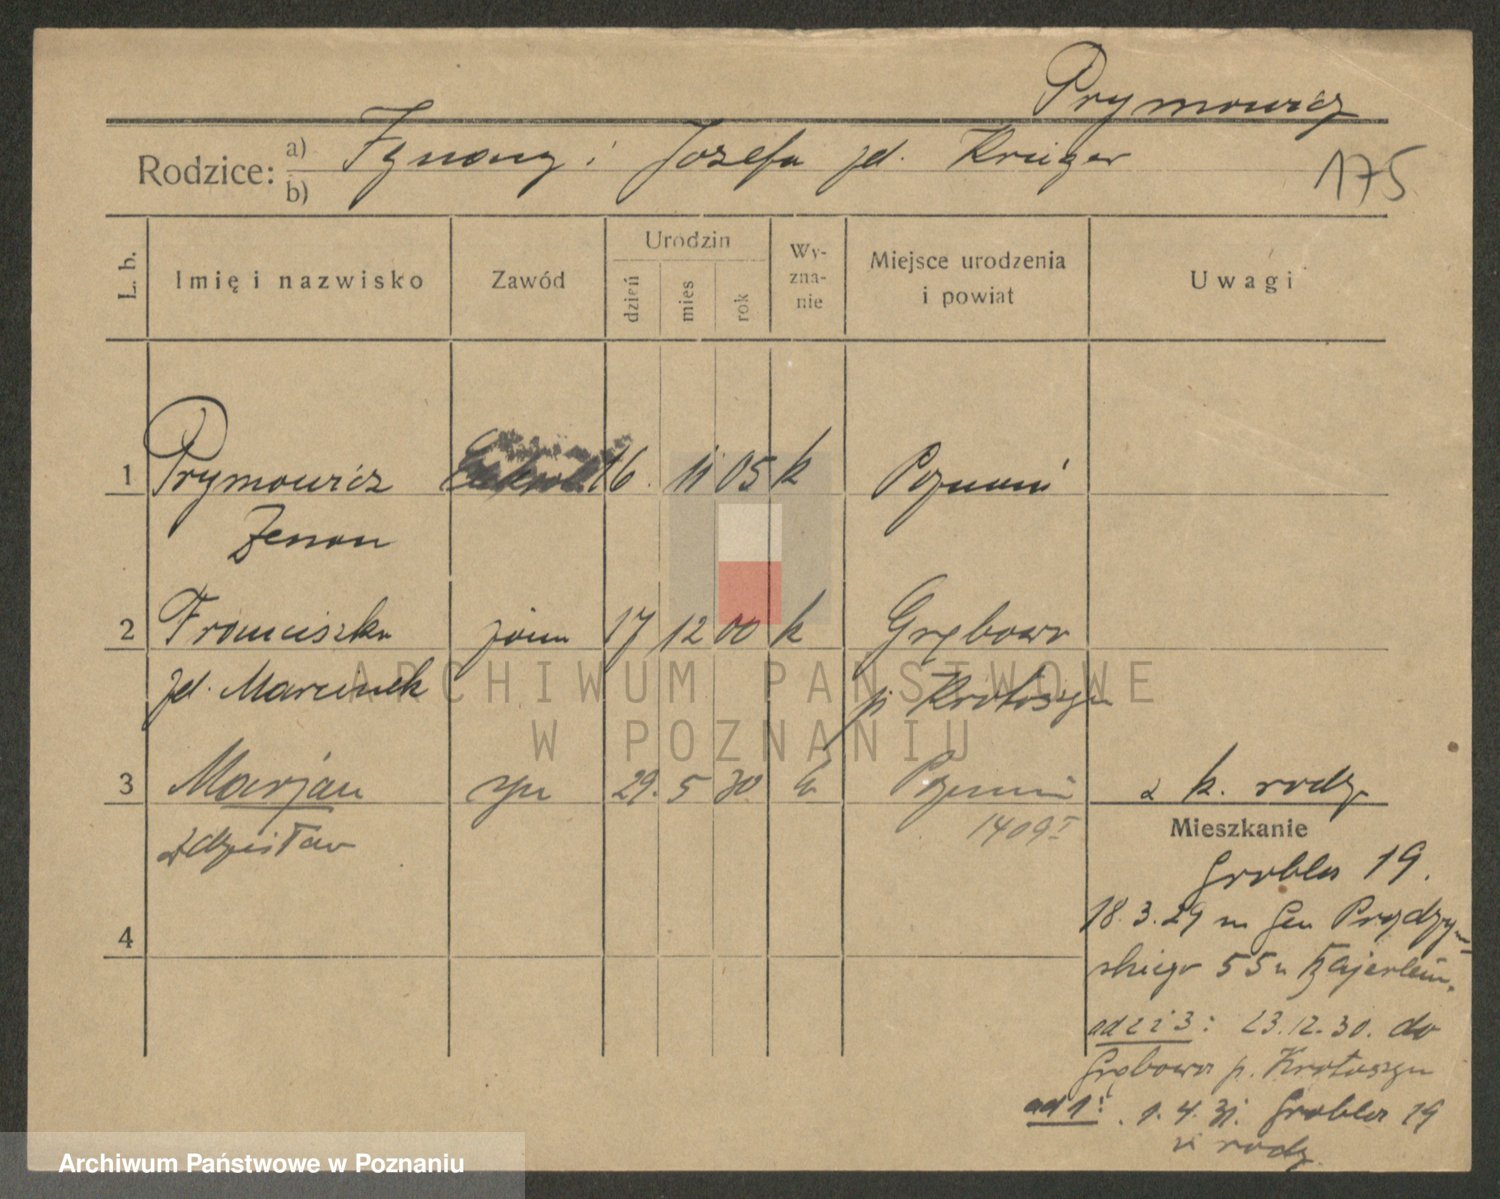 Prymowicz
Rodzice: a) Ignacy i Józefa zd. Krüger
b)
175
L. b.
Imię i nazwisko
Zawód
Urodzin
dzień
mies
rok
Wy-
zna-
nie
Miejsce urodzenia
i powiat
Uwagi
1 Prymowicz 16. 11 05 k Poznań
Zenon
2 Franciszka żona 17 12 00 k Grębowo
zd. Marcinek p. Krotoszyn
3 Marjan syn 29. 5 30 k Poznań
Zdzisław 1409 I
k. rodz.
Mieszkanie
Grobla 19.
18.3.29 Gen Prądzyń-
skiego 55 u Bajerlein.
ad 2 i 3: 23.12.30. do
Grębowa p. Krotoszyn
ad 1: 1.4.31. Grobla 19
u rodz.
4
ARCHIWUM PAŃSTWOWE
W POZNANIU
Archiwum Państwowe w Poznaniu